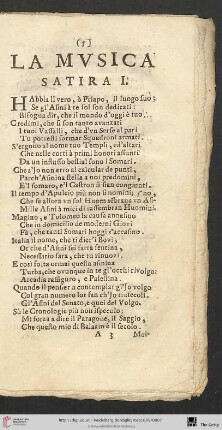 (5)
LA MVSICA
SATIRA I.
HAbbia il vero, ò Priapo, il luogo suo;
Se gl'Asini à te sol son dedicati:
Bisogna dir, che il mondo d'oggi è tuo.
Credimi, che si son tanto avanzati
I tuoi Vassalli, che d'un Serse al pari
Tu potresti formar Squadroni armati.
S'ergono al nome tuo Tempii, ed altari,
Che nelle corti à primi honori assunti
Da un influsso bestial sono i Somari.
Che s'Io non erro al calcular de punti,
Par ch'Asinina stella à noi predomini,
E'l somaro, e'l Castron si sian congiunti.
Il tempo d'Apuleio più non si nomini,
Che se allora un sol Huom sembrava un Asi-
Mille Asini à miei dì rassembran Huomini.
Magino, e Tolomeo
Che in domicilio de moderni Giovi
Fà, che tanti Somari hoggi s'accasino.
Italia il nome, che ti dier'i Bovi,
Or che d'Asini sei fatta sentina,
Necessario sarà, che tu rinuovi.
E così folta ormai questa asinina
Turba, ovunque in te gl'occhi i volgo:
Arcadia rassiguro, e Palestina.
Quando il pensier a contemplar gl'Io volgo
Col gran numero lor fan ch'Io trasecoli,
Gl'Asini del Senato, e quei del Volgo.
Sù le Cronologie più non si secoli
Mi forza a dire il Paragone, il Saggio,
Che questo mio di Balaam è il secolo.
A 3 Mol-